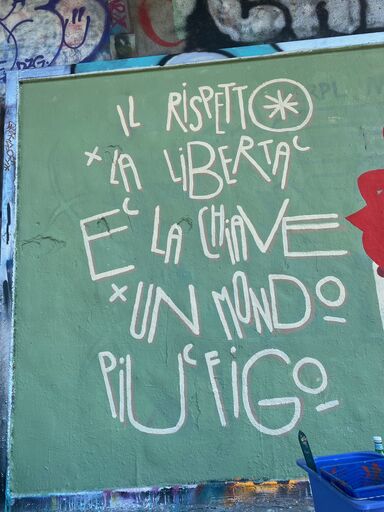 IL RISPETTO
× LA LIBERTA'
E' LA CHIAVE
× UN MONDO
PIU' FIGO